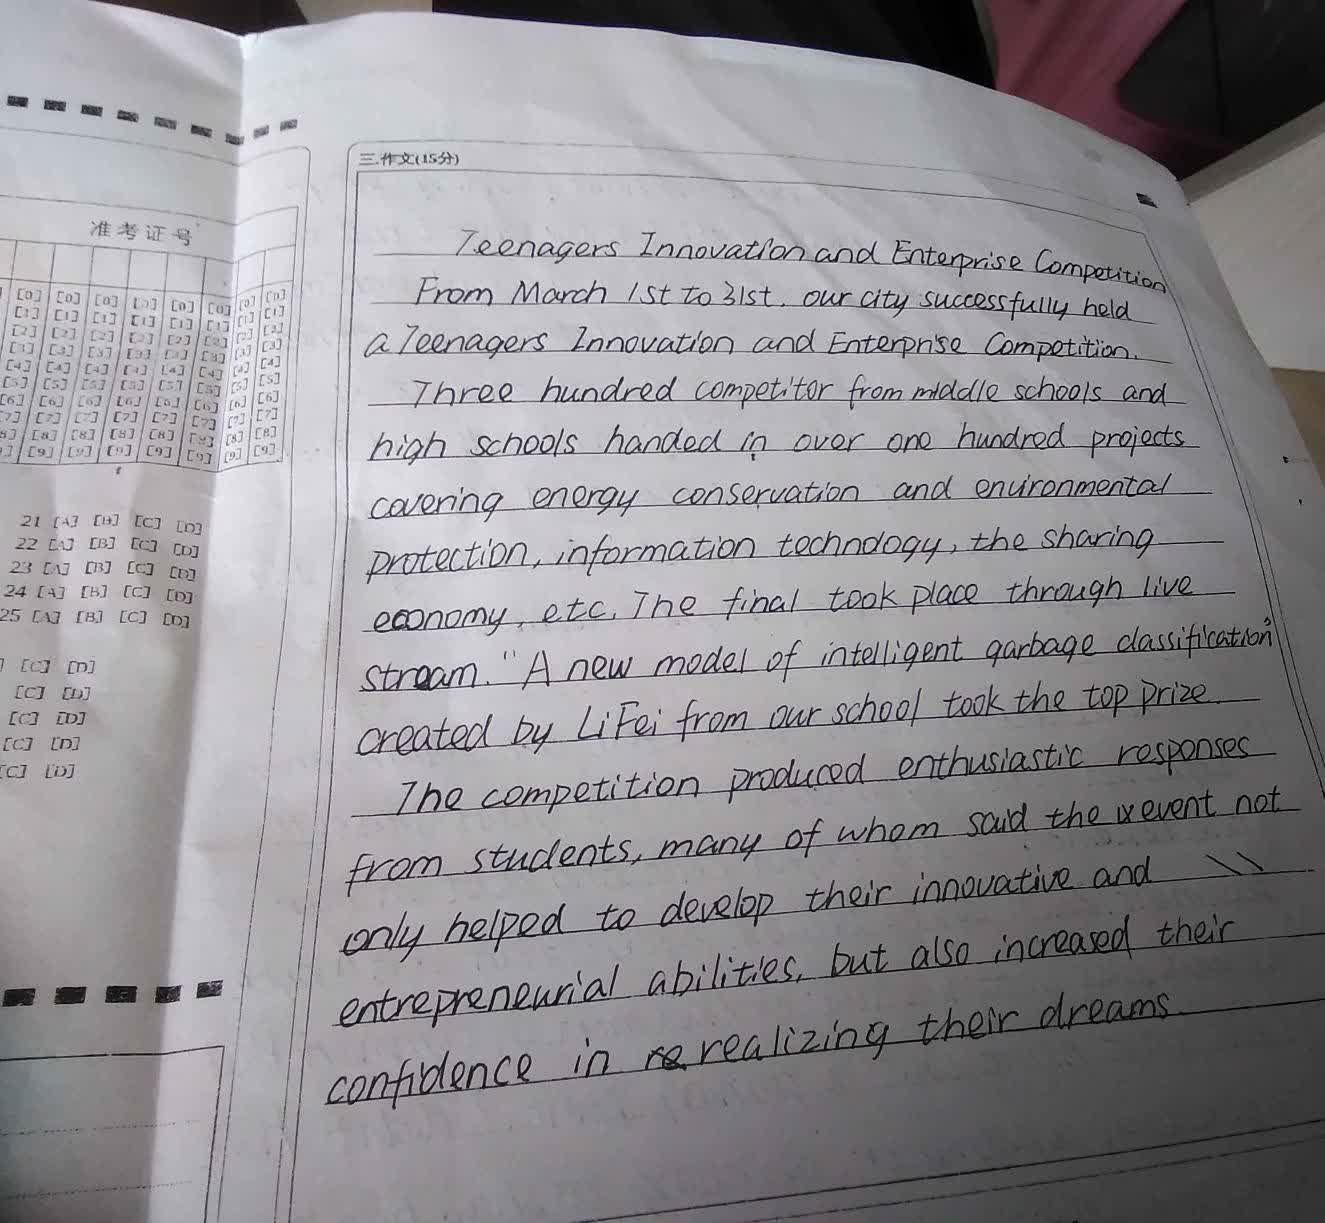 三.作文(15分)
准考证号
[0] [0] [0] [0] [0] [0] [0] [0]
[1] [1] [1] [1] [1] [1] [1] [1]
[2] [2] [2] [2] [2] [2] [2] [2]
[3] [3] [3] [3] [3] [3] [3] [3]
[4] [4] [4] [4] [4] [4] [4] [4]
[5] [5] [5] [5] [5] [5] [5] [5]
[6] [6] [6] [6] [6] [6] [6] [6]
[7] [7] [7] [7] [7] [7] [7] [7]
[8] [8] [8] [8] [8] [8] [8] [8]
[9] [9] [9] [9] [9] [9] [9]
21 [A] [B] [C] [D]
22 [A] [B] [C] [D]
23 [A] [B] [C] [D]
24 [A] [B] [C] [D]
25 [A] [B] [C] [D]
[C] [D]
[C] [D]
[C] [D]
[C] [D]
[C] [D]
Teenagers Innovation and Enterprise Competition
From March 1st to 31st, our city successfully held
a Teenagers Innovation and Enterprise Competition.
Three hundred competitor from middle schools and
high schools handed in over one hundred projects
covering energy conservation and environmental
protection, information technology, the sharing
economy, etc. The final took place through live
stream. "A new model of intelligent garbage classification"
created by Li Fei from our school took the top prize.
The competition produced enthusiastic responses
from students, many of whom said the event not
only helped to develop their innovative and
entrepreneurial abilities, but also increased their
confidence in re realizing their dreams.